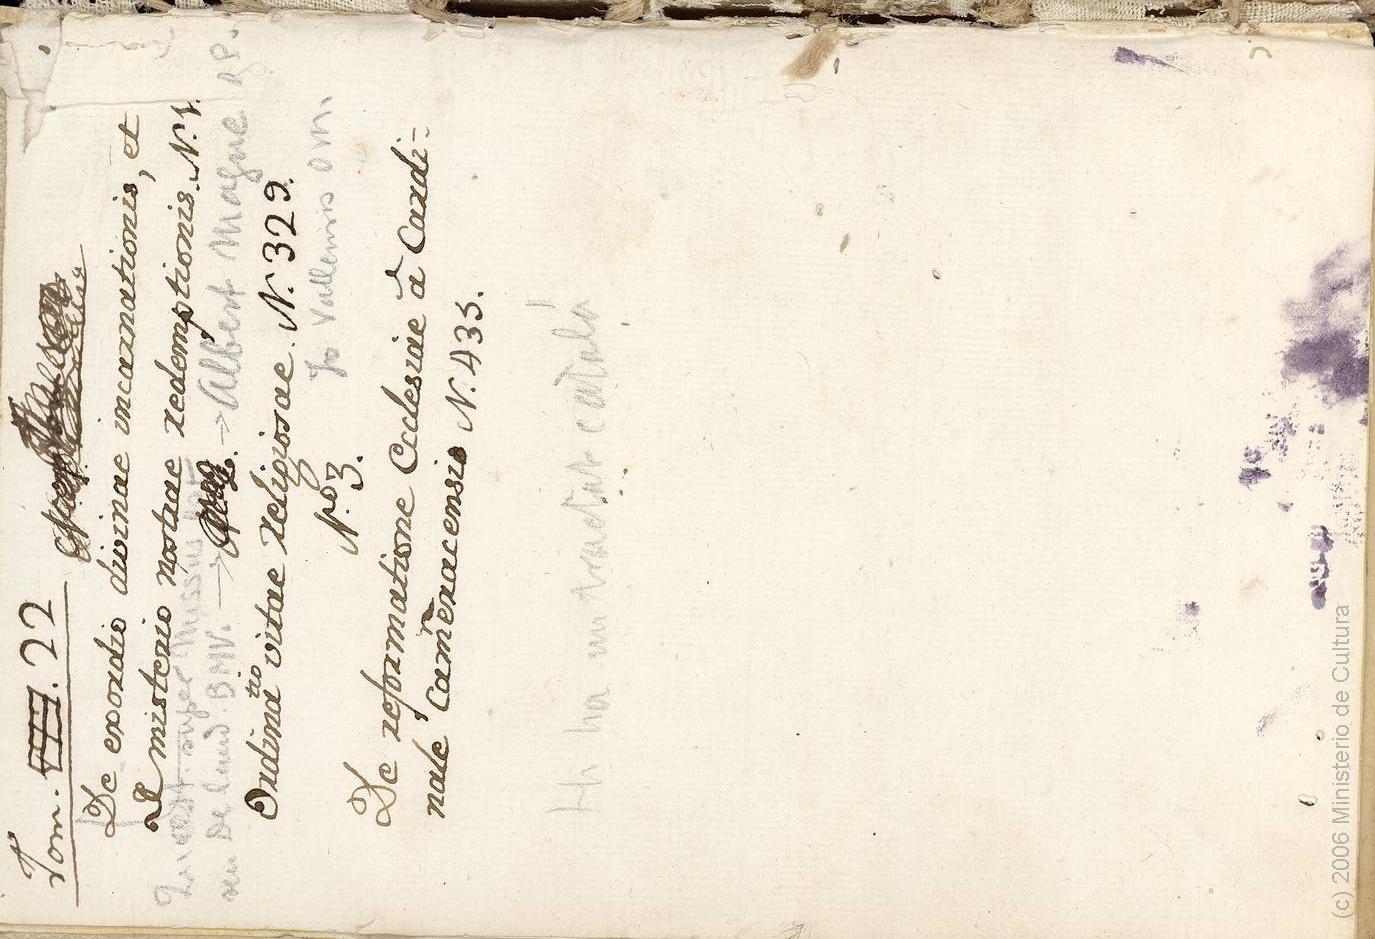 Tom. 22
De exordio divinae incarnationis, et
misterio nostrae redemptionis. N. 1.
super Missus est
seu De laud. BMV. → → Albert Magne
Ordinatio vitae religiosae. N. 329.
Jo Vallensis OM
N.º 3.
De reformatione Ecclesiae à Cardi=
nale Cameracensis N. 435.
Hi ha un tractat català
(c) 2006 Ministerio de Cultura